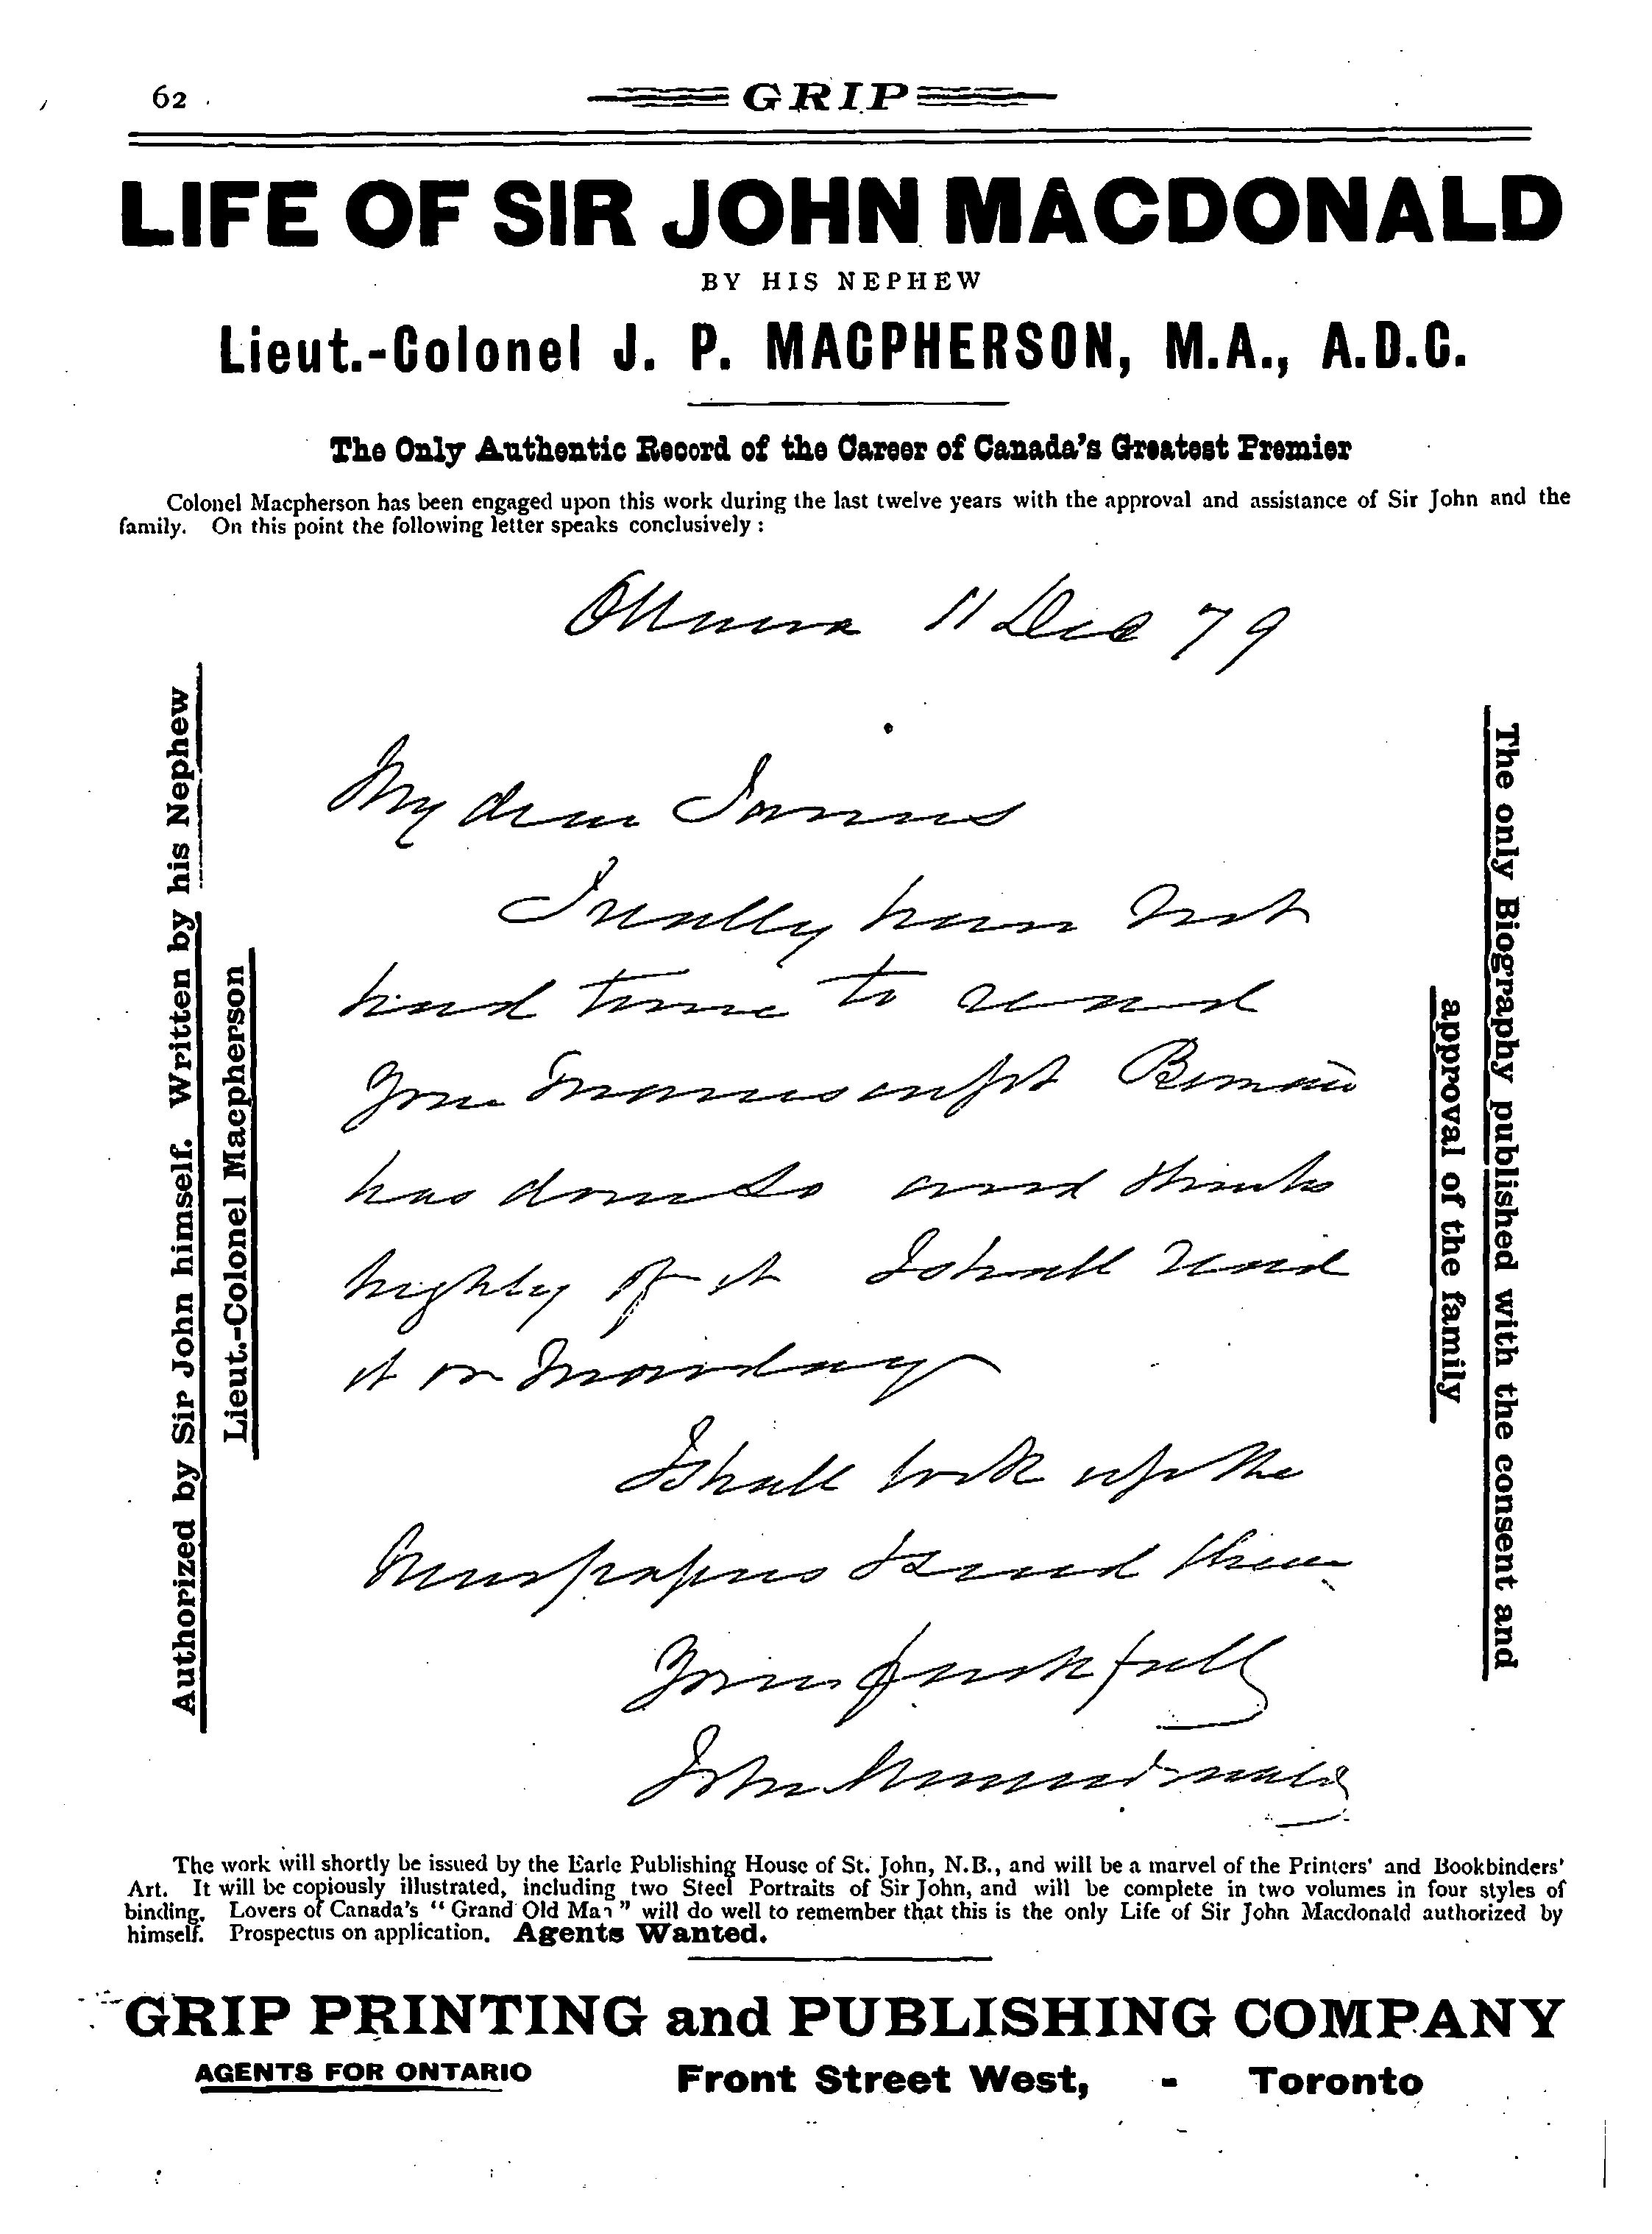 62
GRIP
LIFE OF SIR JOHN MACDONALD
BY HIS NEPHEW
Lieut.-Colonel J. P. MACPHERSON, M.A., A.D.C.
The Only Authentic Record of the Career of Canada's Greatest Premier
Colonel Macpherson has been engaged upon this work during the last twelve years with the approval and assistance of Sir John and the
family. On this point the following letter speaks conclusively :
Ottawa 11 Dec 79
My dear
I really have not
had time to read
your manuscript
has done so and thinks
highly of it I shall read
it on Monday
I shall look up the
Newspapers & send them
Yours faithfully
John A Macdonald
Authorized by Sir John himself. Written by his Nephew
Lieut.-Colonel Macpherson
The only Biography published with the consent and
approval of the family
The work will shortly be issued by the Earle Publishing House of St. John, N.B., and will be a marvel of the Printers' and Bookbinders'
Art. It will be copiously illustrated, including two Steel Portraits of Sir John, and will be complete in two volumes in four styles of
binding. Lovers of Canada's "Grand Old Man" will do well to remember that this is the only Life of Sir John Macdonald authorized by
himself. Prospectus on application. Agents Wanted.
GRIP PRINTING and PUBLISHING COMPANY
AGENTS FOR ONTARIO Front Street West, - Toronto